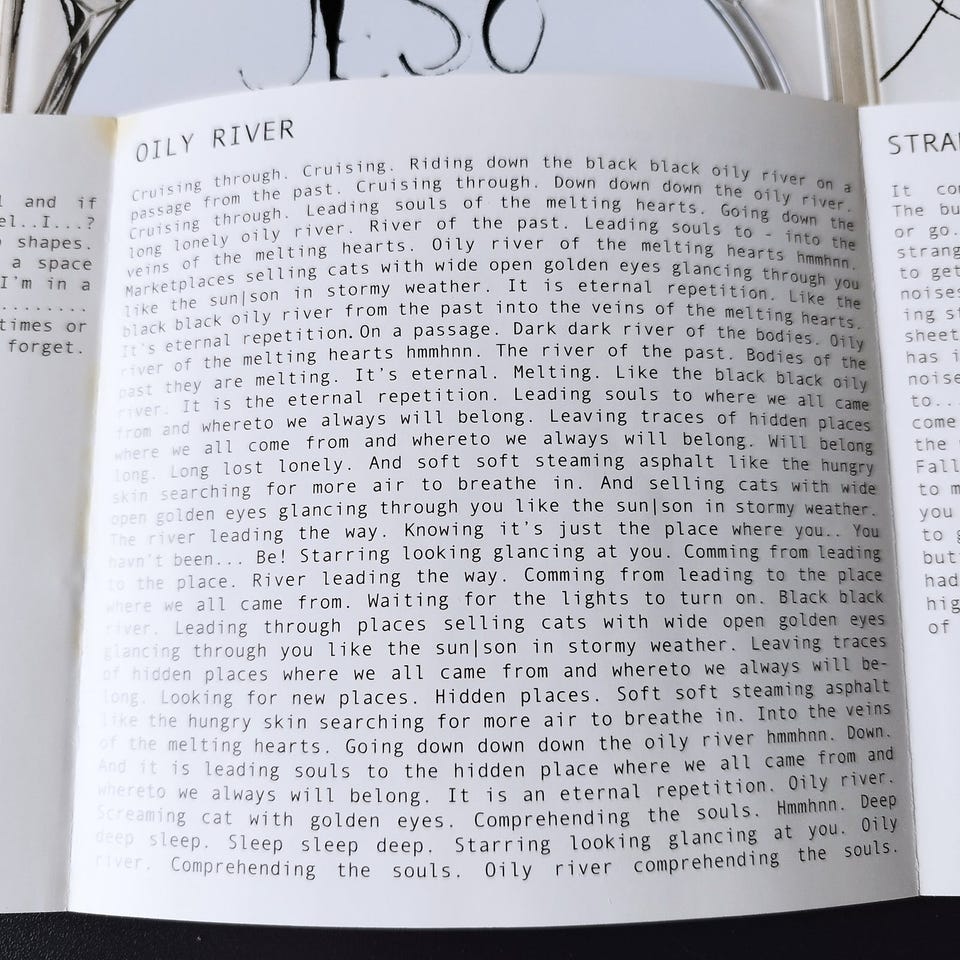 OILY RIVER
Cruising through. Cruising. Riding down the black black oily river on a
passage from the past. Cruising through. Down down down the oily river.
Cruising through. Leading souls of the melting hearts. Going down the
long lonely oily river. River of the past. Leading souls to - into the
veins of the melting hearts. Oily river of the melting hearts hmmhnn.
Marketplaces selling cats with wide open golden eyes glancing through you
like the sun|son in stormy weather. It is eternal repetition. Like the
black black oily river from the past into the veins of the melting hearts.
It's eternal repetition. On a passage. Dark dark river of the bodies. Oily
river of the melting hearts hmmhnn. The river of the past. Bodies of the
past they are melting. It's eternal. Melting. Like the black black oily
river. It is the eternal repetition. Leading souls to where we all came
from and whereto we always will belong. Leaving traces of hidden places
where we all come from and whereto we always will belong. Will belong
long. Long lost lonely. And soft soft steaming asphalt like the hungry
skin searching for more air to breathe in. And selling cats with wide
open golden eyes glancing through you like the sun|son in stormy weather.
The river leading the way. Knowing it's just the place where you.. You
havn't been... Be! Starring looking glancing at you. Comming from leading
to the place. River leading the way. Comming from leading to the place
where we all came from. Waiting for the lights to turn on. Black black
river. Leading through places selling cats with wide open golden eyes
glancing through you like the sun|son in stormy weather. Leaving traces
of hidden places where we all came from and whereto we always will be-
long. Looking for new places. Hidden places. Soft soft steaming asphalt
like the hungry skin searching for more air to breathe in. Into the veins
of the melting hearts. Going down down down the oily river hmmhnn. Down.
And it is leading souls to the hidden place where we all came from and
whereto we always will belong. It is an eternal repetition. Oily river.
Screaming cat with golden eyes. Comprehending the souls. Hmmhnn. Deep
deep sleep. Sleep sleep deep. Starring looking glancing at you. Oily
river. Comprehending the souls. Oily river comprehending the souls.
and if
el..I...?
shapes.
a space
I'm in a
.........
times or
forget.
STRA
It
The
or go.
strang
to get
noises
ing
sheet
has
noise
to...
come
the
Fall
to
you
to
but
had
hig
of